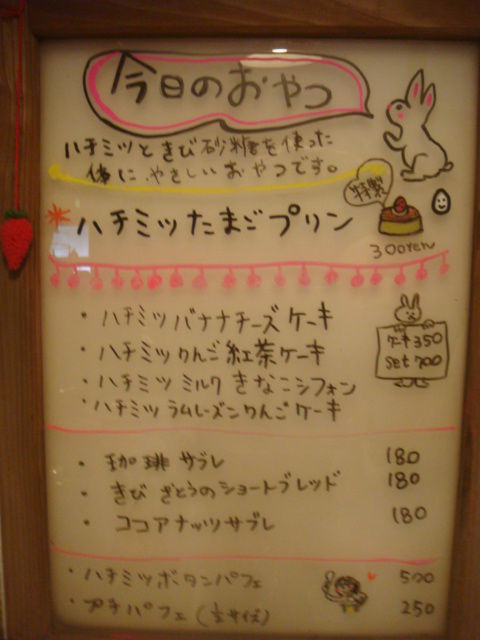 今日のおやつ
ハチミツときび砂糖を使った
体にやさしいおやつです。
特製
ハチミツたまごプリン
300yen
・ハチミツバナナチーズケーキ
・ハチミツりんご紅茶ケーキ
・ハチミツミルクきなこシフォン
・ハチミツラムレーズンりんごケーキ
ケーキ350
set 700
・珈琲サブレ 180
・きびざとうのショートブレッド 180
・ココアナッツサブレ 180
・ハチミツボタンパフェ 500
・プチパフェ(1/2サイズ) 250